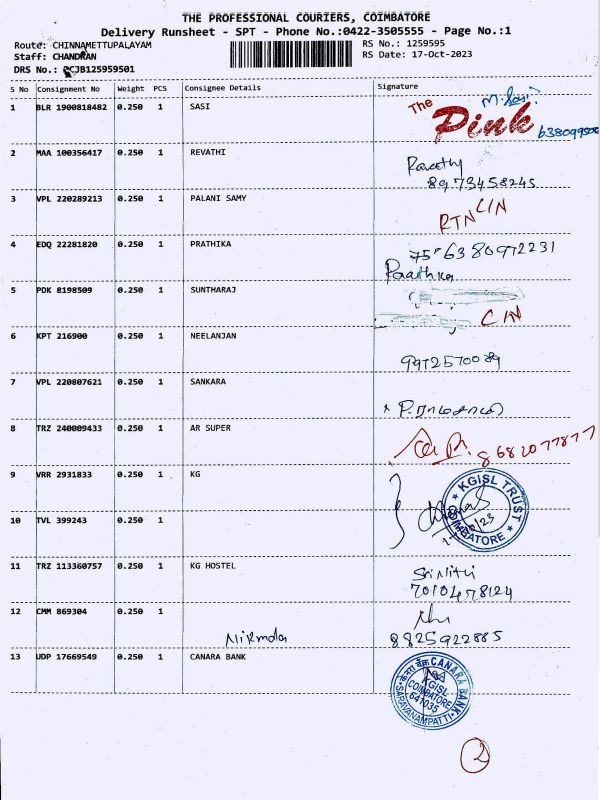 THE PROFESSIONAL COURIERS, COIMBATORE
Delivery Runsheet - SPT - Phone No.:0422-3505555 - Page No.:1
Route: CHINNAMETTUPALAYAM
RS No.: 1259595
Staff: CHANDRAN
RS Date: 17-Oct-2023
DRS No.: PCJB125959501
S No Consignment No Weight PCS Consignee Details Signature
1 BLR 1900818482 0.250 1 SASI
The Pink
2 MAA 100356417 0.250 1 REVATHI
Revathy
8973458245
3 VPL 220289213 0.250 1 PALANI SAMY
RTN C/N
4 EDQ 22281820 0.250 1 PRATHIKA
6380972231
5 PDK 8198509 0.250 1 SUNTHARAJ
C/N
6 KPT 216900 0.250 1 NEELANJAN
7 VPL 220807621 0.250 1 SANKARA
8 TRZ 240009433 0.250 1 AR SUPER
8682077877
9 VRR 2931833 0.250 1 KG
KGISL TRUST
COIMBATORE
10 TVL 399243 0.250 1
11 TRZ 113360757 0.250 1 KG HOSTEL
7010478124
12 CMM 869304 0.250 1
Nirmala
8825922885
13 UDP 17669549 0.250 1 CANARA BANK
केनरा बैंक CANARA BANK
KGISL
COIMBATORE
641035
SARAVANAMPATTI
2